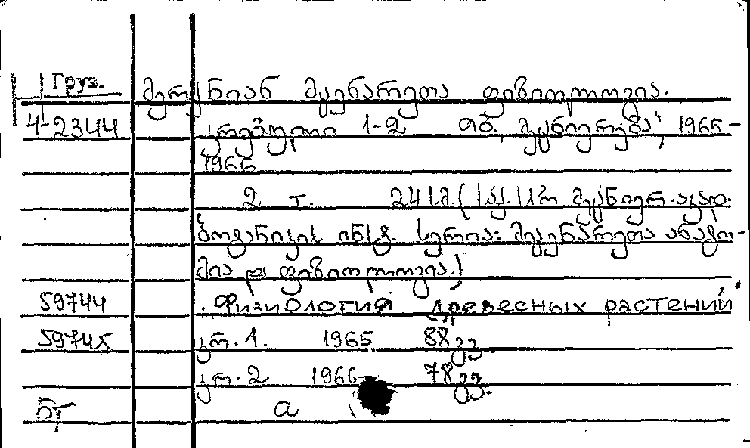 Груз. მერქნიან მცენარეთა ფიზიოლოგია.
4-2344 კრებული 1-2 თბ., "მეცნიერება", 1965-
1966
2 т. 24 სმ. ( საქ. სსრ მეცნიერ. აკად.
ბოტანიკის ინსტ. სერია: მცენარეთა ანატო-
მია და ფიზიოლოგია.)
59744 Физиология древесных растений
59745 კრ. 1. 1965 88 გვ.
კრ. 2 1966 78 გვ.
а